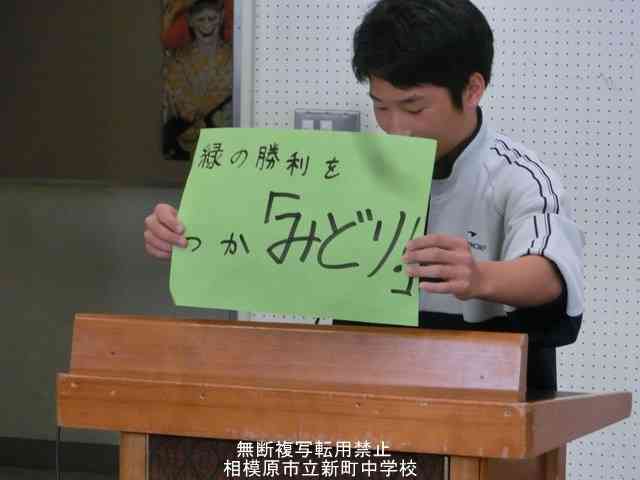 緑の勝利を
つか「みどり!」
無断複写転用禁止
相模原市立新町中学校